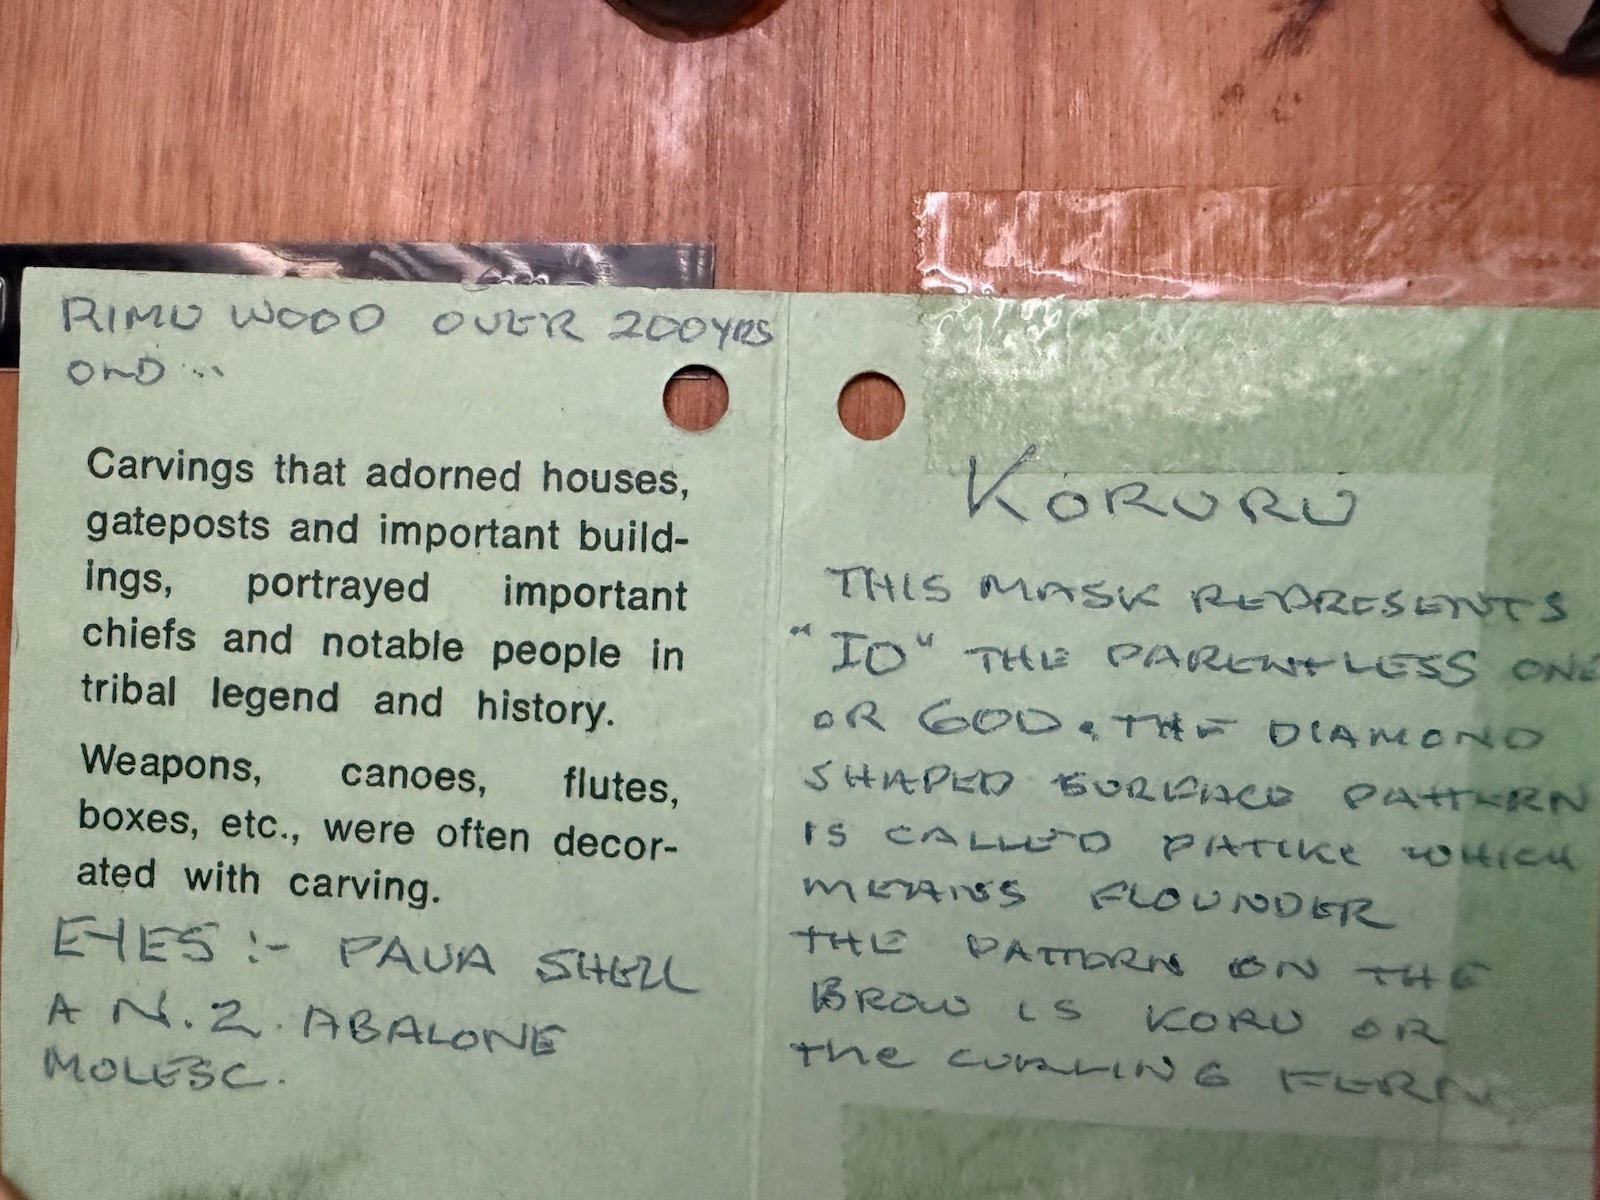 RIMU WOOD OVER 200YRS
OLD ...
Carvings that adorned houses,
gateposts and important build-
ings, portrayed important
chiefs and notable people in
tribal legend and history.
Weapons, canoes, flutes,
boxes, etc., were often decor-
ated with carving.
EYES :- PAUA SHELL
A N.Z. ABALONE
MOLESC.
KORURU
THIS MASK REPRESENTS
"IO" THE PARENTLESS ONE
OR GOD. THE DIAMOND
SHAPED SURFACE PATTERN
IS CALLED PATIKE WHICH
MEANS FLOUNDER
THE PATTERN ON THE
BROW IS KORU OR
the CURLING FERN